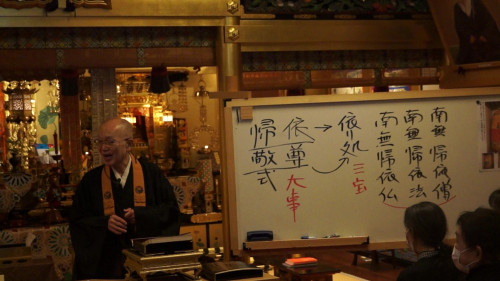 南無帰依僧
南無帰依法
南無帰依仏
依処
三宝
依尊
大事
帰敬式